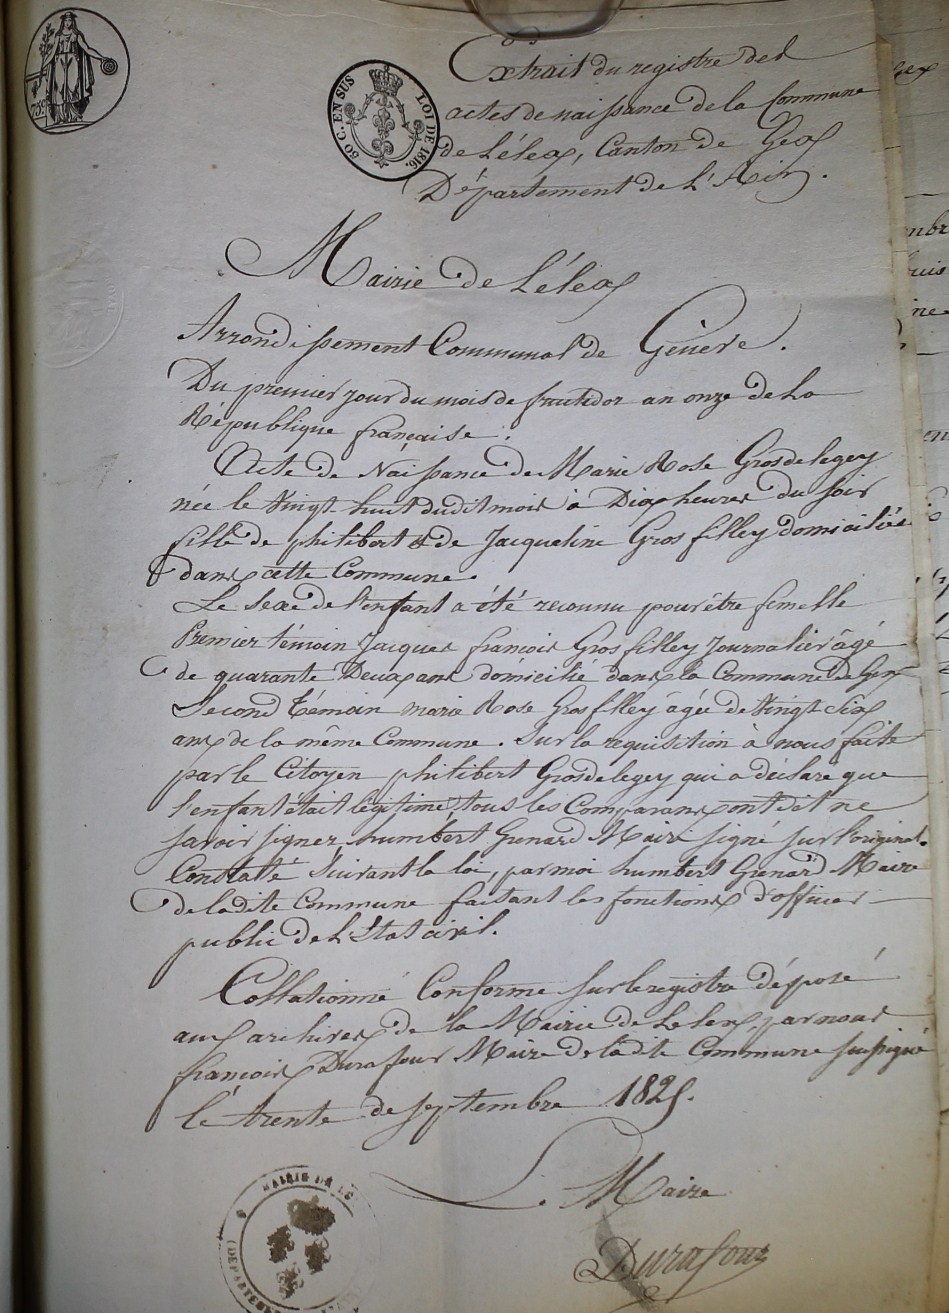 75c
50 C. EN SUS
LOI DE 1816.
Extrait du registre des
actes de naissance de la Commune
de Lélex, Canton de Gex
Département de L'Ain.
Mairie de Lélex
Arrondissement Communal de Genève.
Du premier jour du mois de fructidor an onze de La
République française.
Acte de Naissance de Marie Rose Grosdelegey
née le vingt huit dudit mois à Dix heures du soir
fille de philibert & de Jacqueline Gros filley domiciliés
dans cette Commune.
Le Sexe de l'enfant a été reconnu pour être femelle
Premier témoin Jacques françois Gros filley Journalier âgé
de quarante Deux ans domicilié dans la Commune de
Second témoin marie Rose Gros filley âgée de Vingt Six
ans de la même Commune. Sur la requisition à nous faite
par le Citoyen philibert Grosdelegey qui a déclaré que
l'enfant était légitime, tous les Comparans ont dit ne
savoir signer. humbert Grenard Maire signé sur l'original.
Constaté Suivant la loi, par moi humbert Grenard Maire
de ladite Commune faisant les fonctions d'officier
public de L'état civil.
Collationné Conforme sur le registre déposé
aux archives de la Mairie de Lelex, par nous
françois Durafour Maire de ladite Commune soussigné
le trente de septembre 1825.
Le Maire
Durafour
MAIRIE DE LE
(DEPARTEME